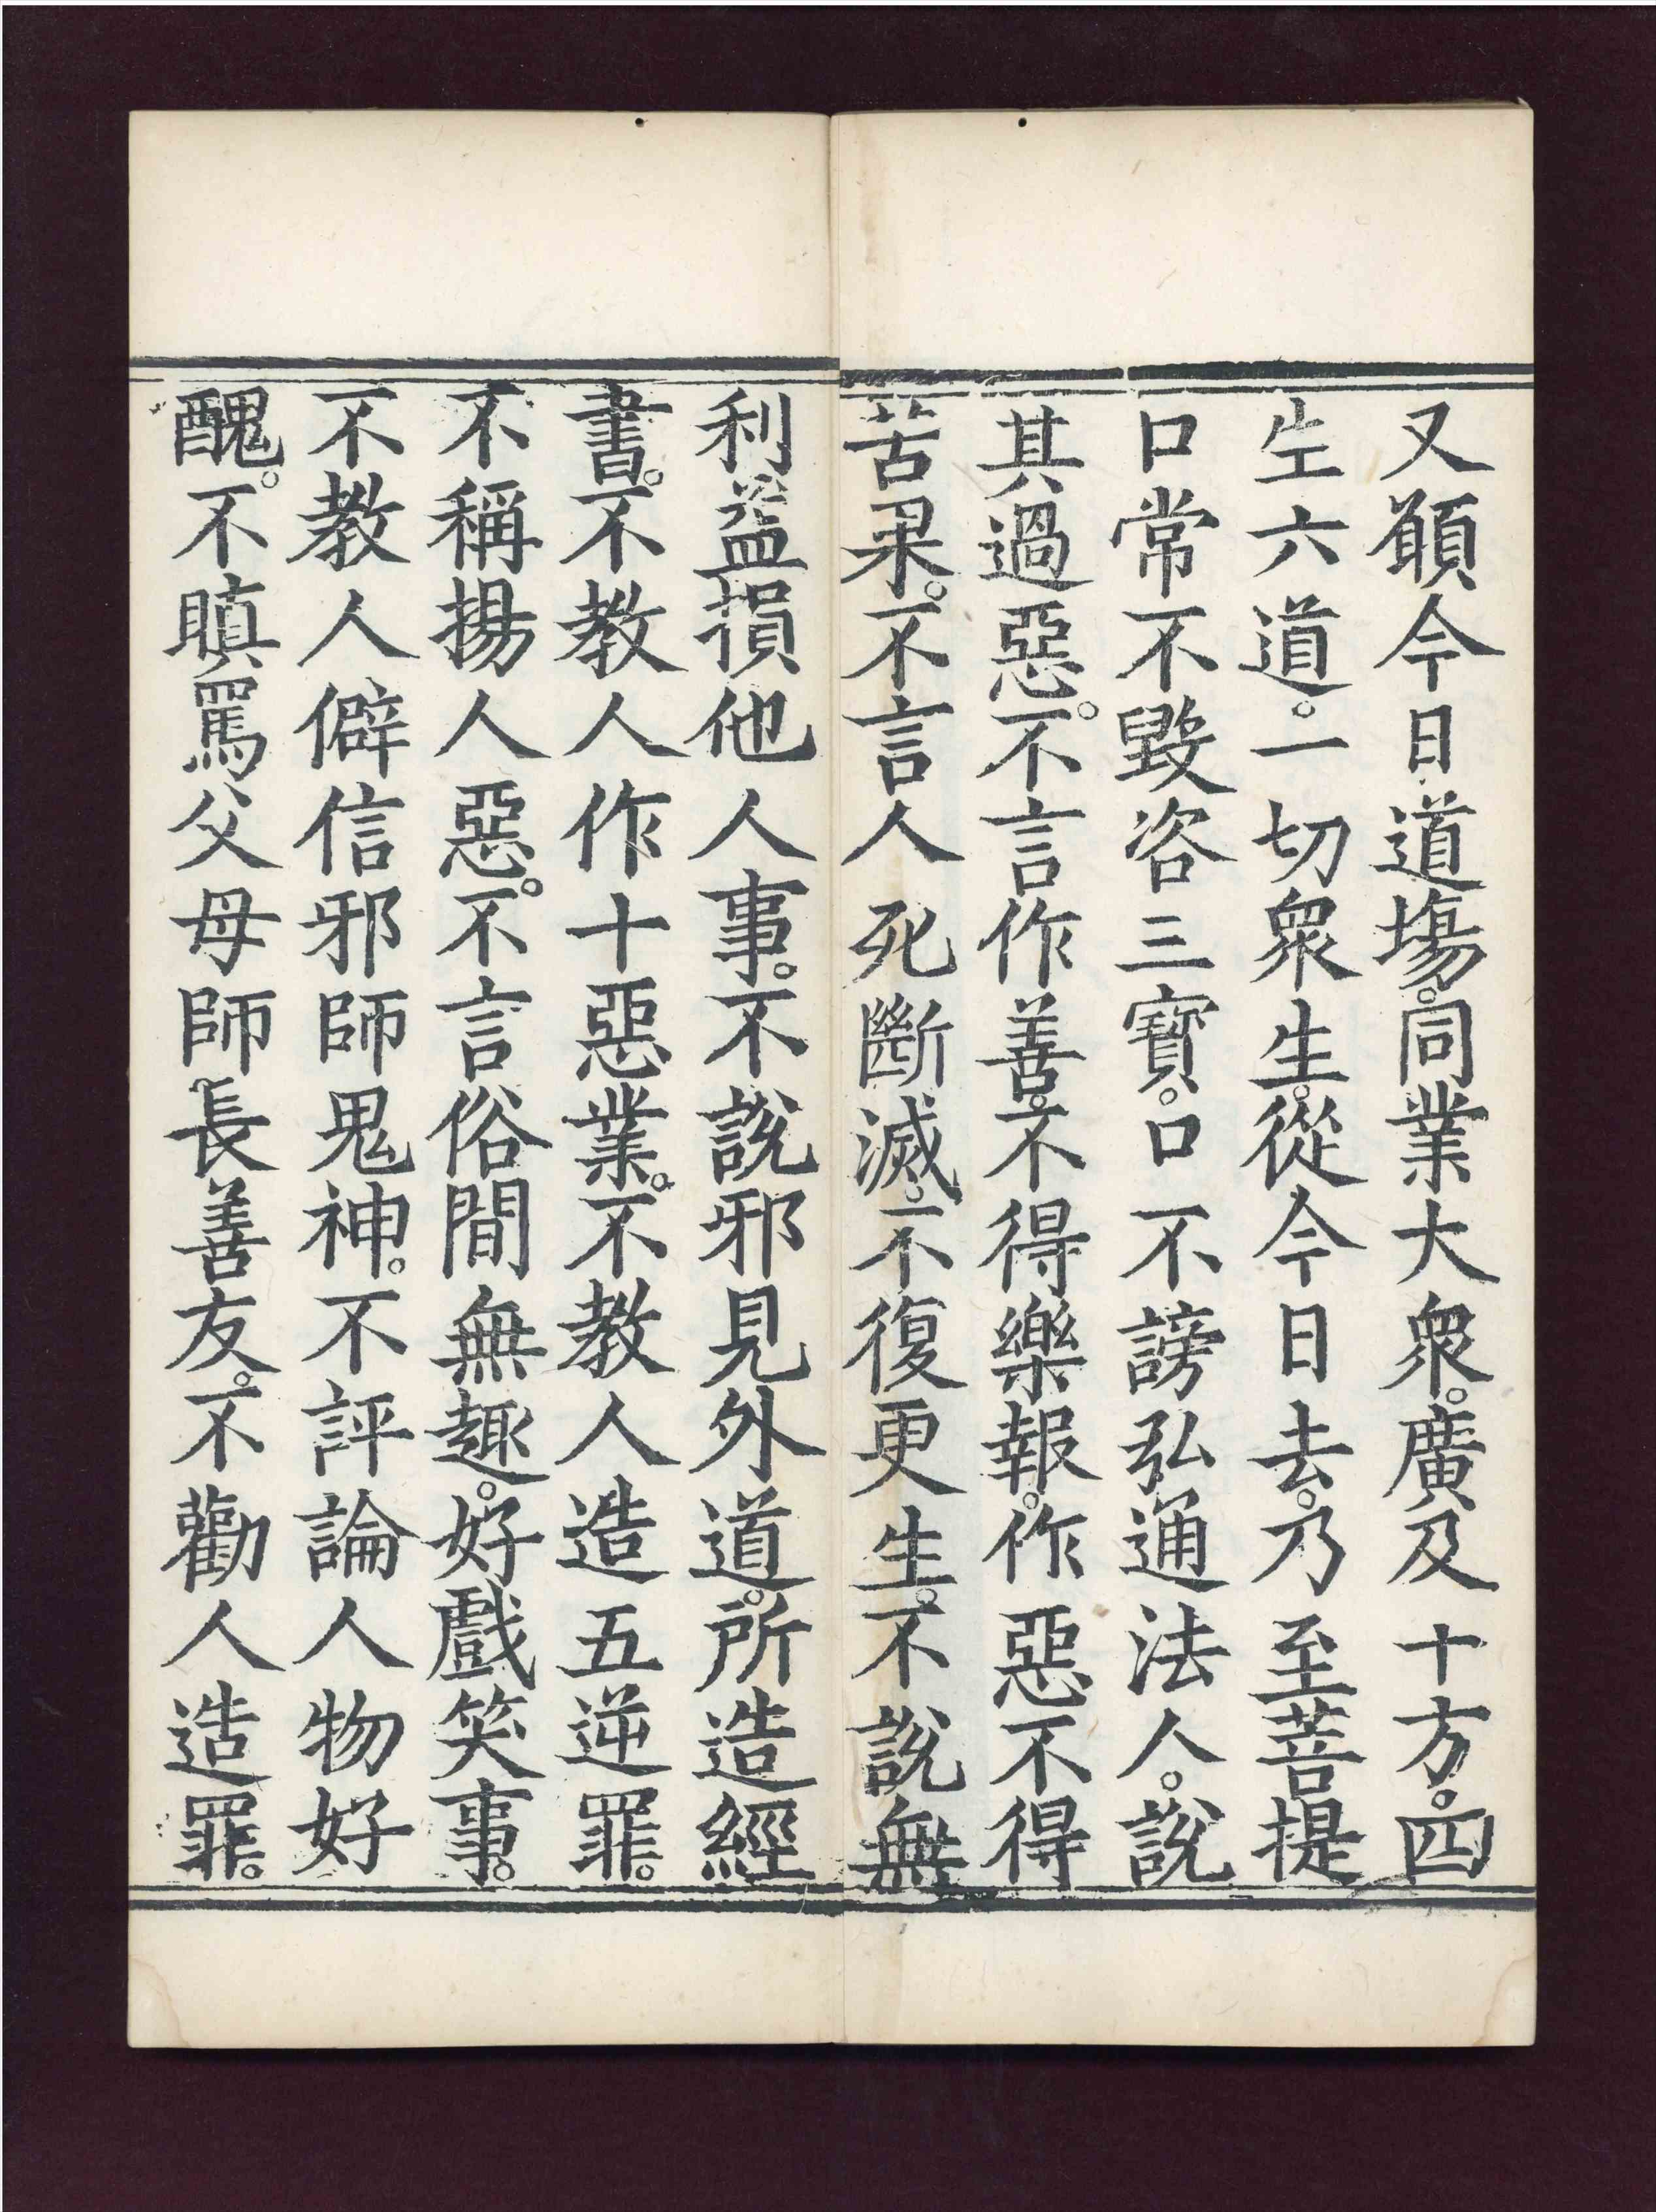 又願今日道塲。同業大衆。廣及十方。四
生六道。一切衆生。從今日去。乃至菩提
口常不毀呰三寶。口不謗弘通法人。說
其過惡。不言作善。不得樂報。作惡不得
苦果。不言人死斷滅。不復更生。不說無
利益損他人事。不說邪見外道。所造經
書。不教人作十惡業。不教人造五逆罪。
不稱揚人惡。不言俗間無趣。好戲笑事。
不教人僻信邪師鬼神。不評論人物好
醜。不瞋罵父母師長善友。不勸人造罪。